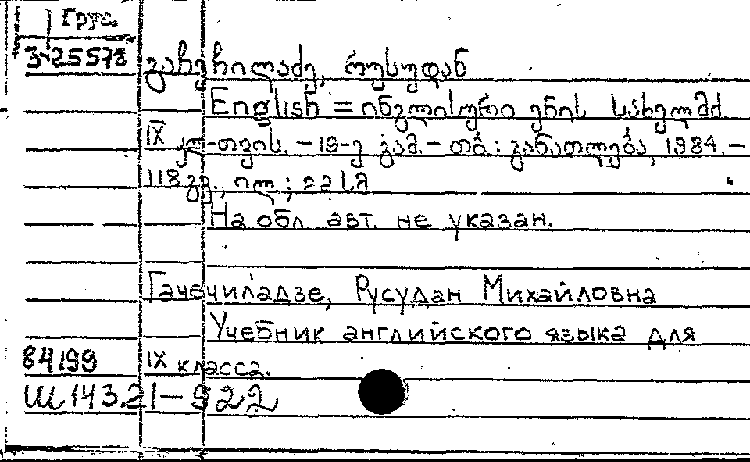 Груз.
3-25578
გაჩეჩილაძე, რუსუდან
English = ინგლისური ენის სახელმძ.
IX კლ-თვის. – 19-ე გამ. – თბ.: განათლება, 1984. –
118 გვ., ილ.; 22 სმ
На обл. авт. не указан.
Гачечиладзе, Русудан Михайловна
Учебник английского языка для
84199 IX класса.
Ш143.21–922